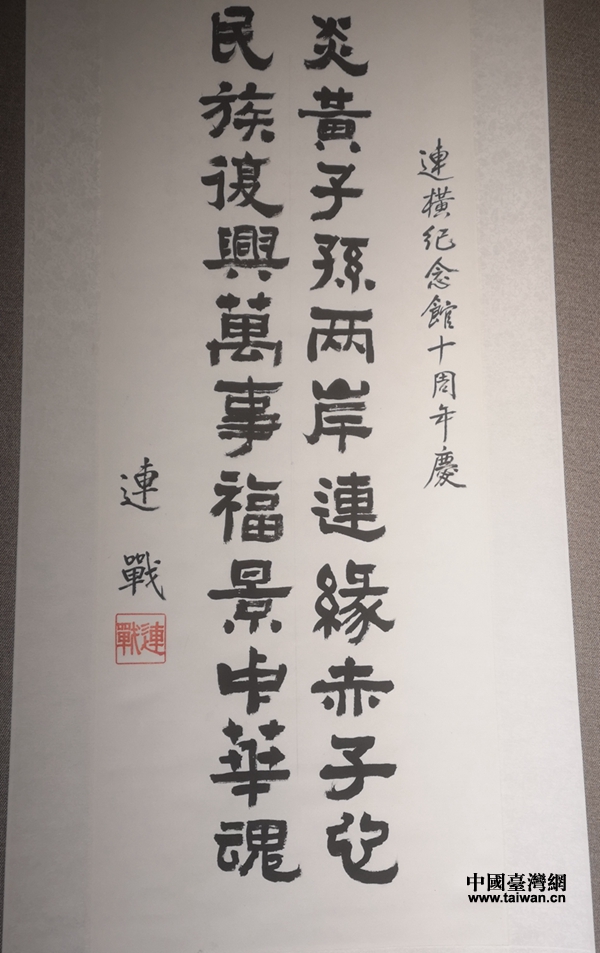 連橫纪念館十周年慶
炎黃子孫两岸連緣赤子心
民族復興萬事福景中華魂
連戰
連戰
中國臺灣網
www.taiwan.cn